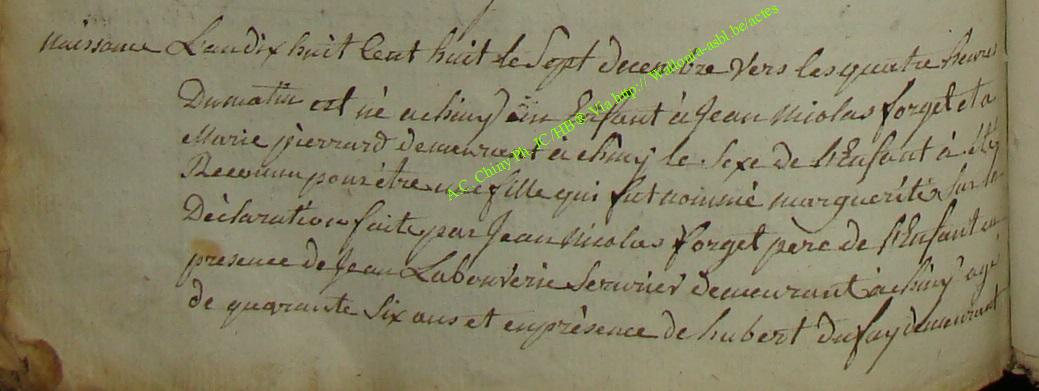 naissance Lan dix huit Cent huit le Sept decembre vers les quatre heures
Du matin est né a chiny un Enfant à Jean Nicolas forget et a
Marie pierrard demeurant à chiny le Sexe de l'Enfant à été
Reconnu pour être une fille qui fut nommé marguérite Sur la
Déclaration faite par Jean Nicolas forget pere de l'Enfant en
presence de Jean Labouverie Serurier demeurant à chiny agé
de quarante Six ans et en présence de hubert dufay demeurant
A.C. Chiny Ph. JC/HB ® Via http:// Wallonia-asbl.be/actes